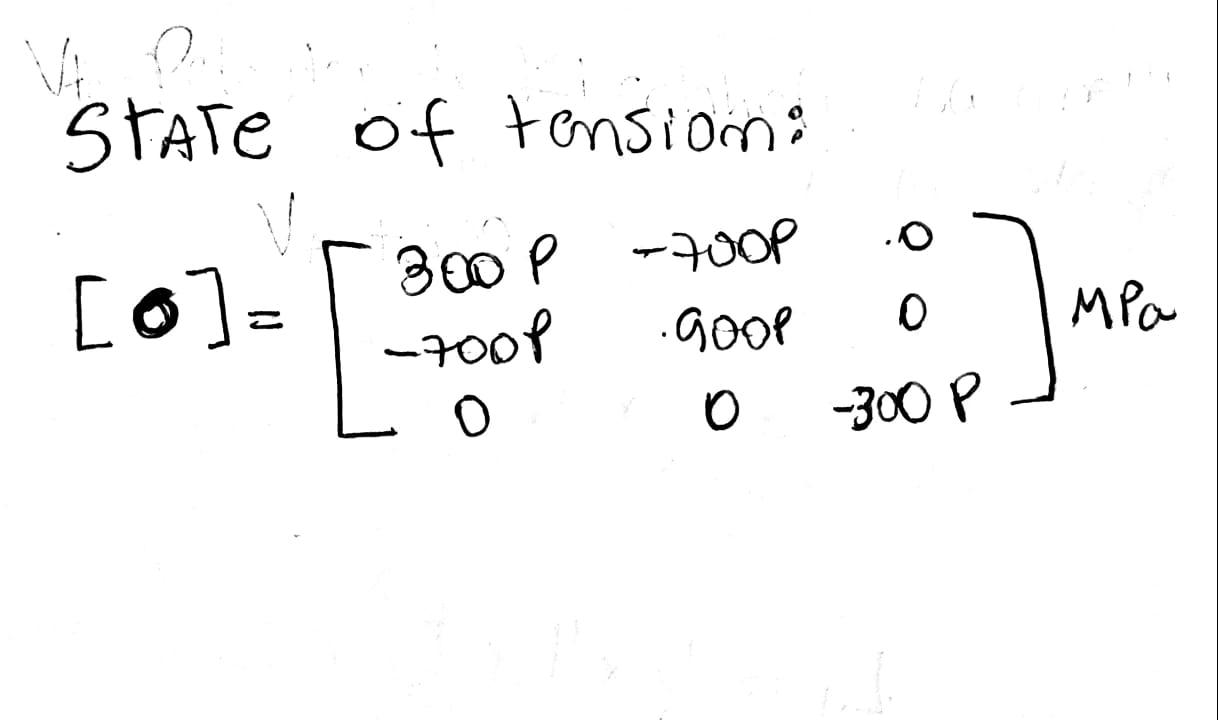 State of tension:
[σ] = [300 P -700P 0
-700P 900P 0
0 0 -300 P] MPa